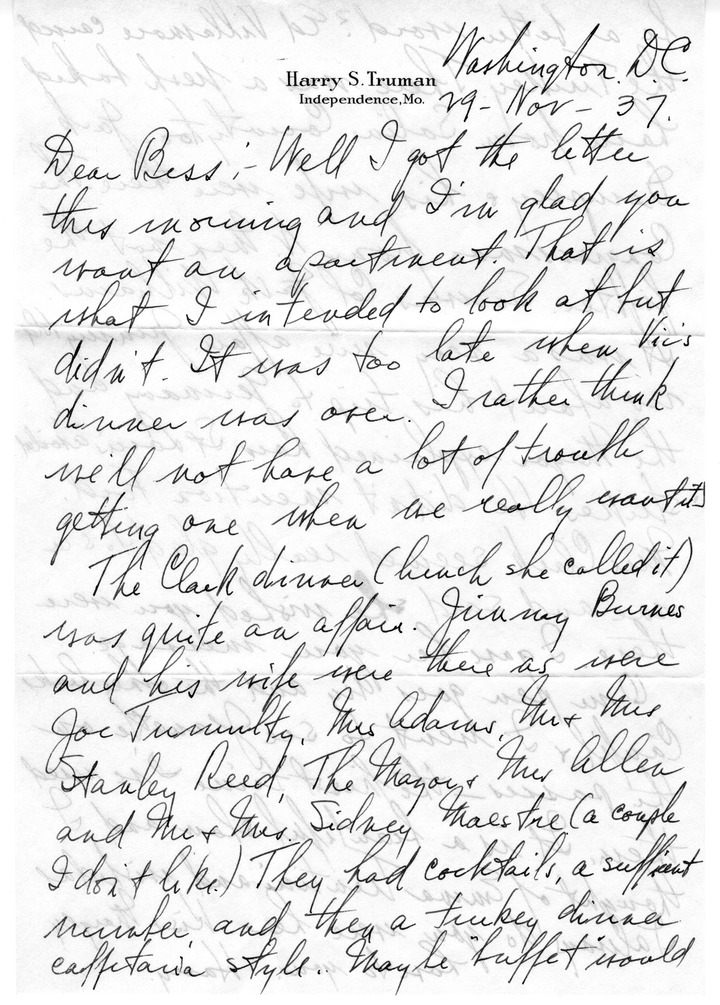 Harry S. Truman
Independence, Mo.
Washington, D.C.
29 - Nov - 37.
Dear Bess :- Well I got the letter
this morning and I'm glad you
want an apartment. That is
what I intended to look at but
didn't. It was too late when Vic's
dinner was over. I rather think
we'll not have a lot of trouble
getting one when we really want it.
The Clark dinner (lunch she called it)
was quite an affair. Jimmy Burnes
and his wife were there as were
Joe Tumulty, Mrs Adams, Mr & Mrs
Stanley Reed, The Mayor & Mrs Allen
and Mr & Mrs. Sidney Maestre (a couple
I don't like.) They had cocktails, a suffient
number, and then a turkey dinner
caffetaria style. Maybe "buffet" would